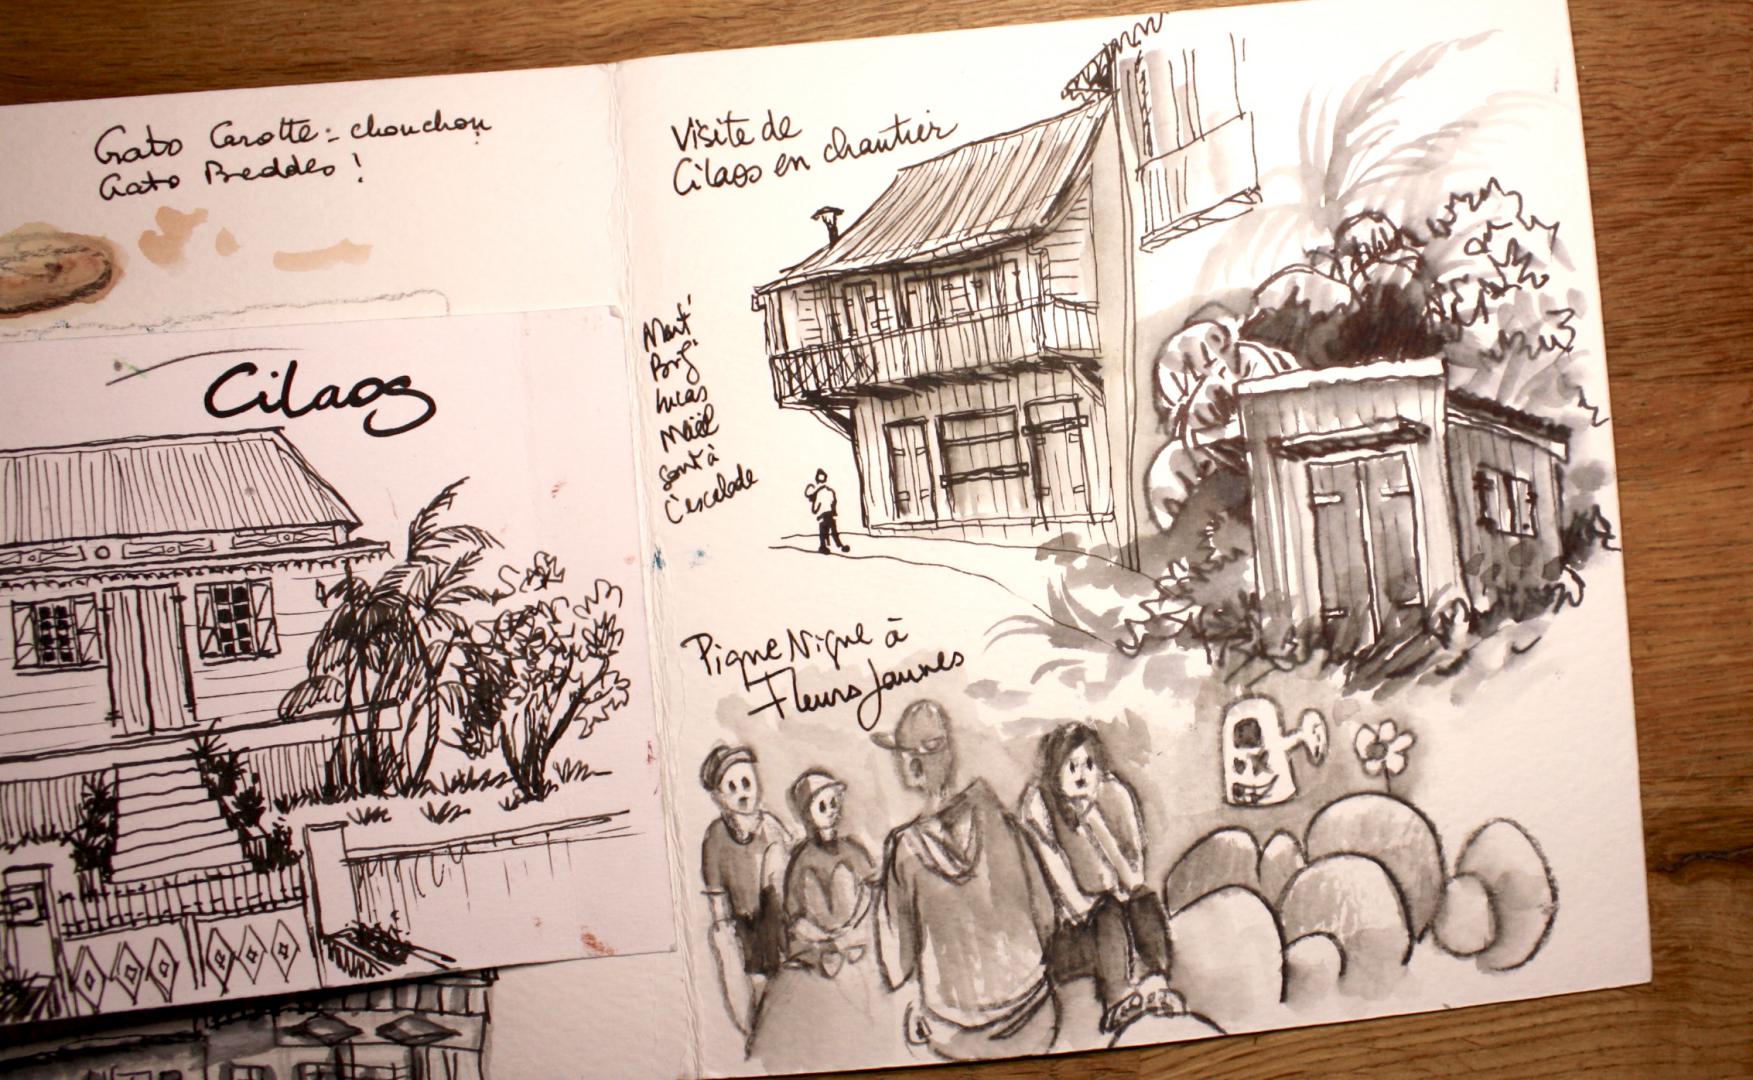 Gato Carotte = chouchou
Gato Breddes !
Cilaos
Visite de
Cilaos en chantier
Mont'
Brig'
Lucas
Maël
sont à
l'escalade
Pique Nique à
Fleurs Jaunes